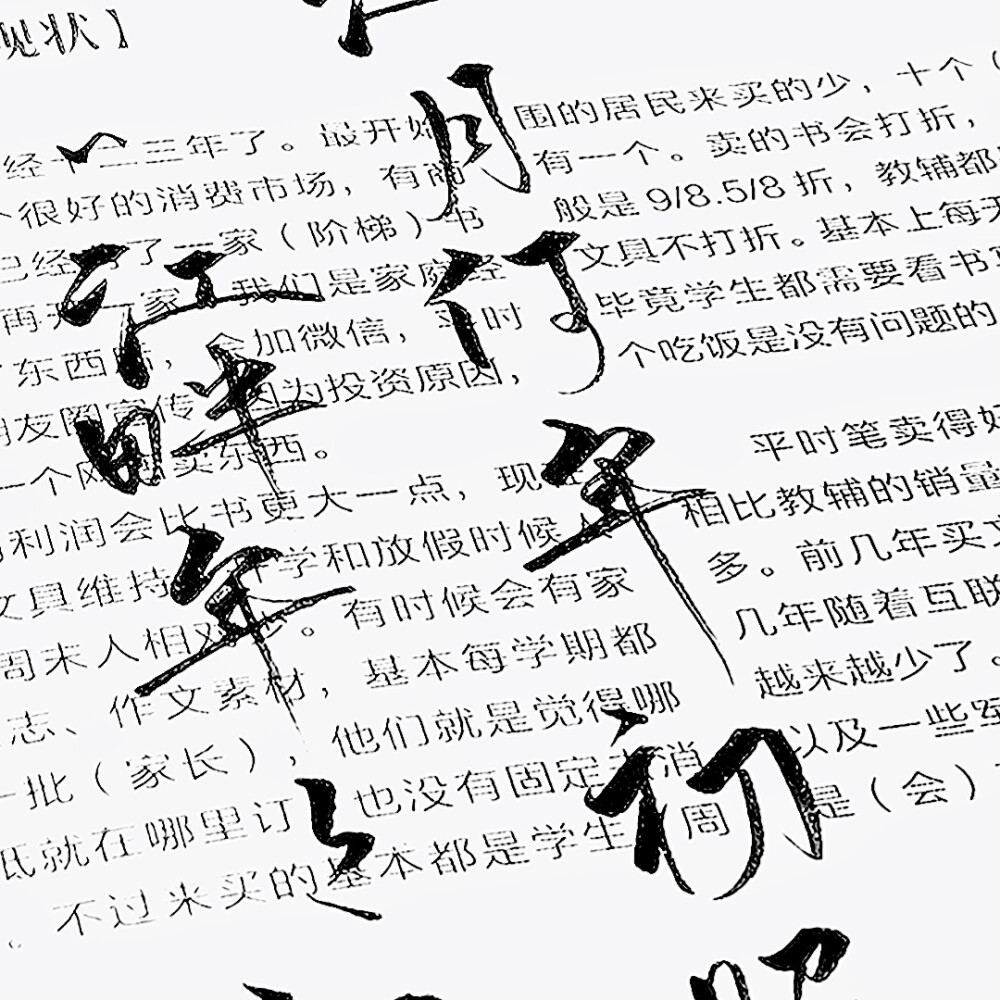 现状】
经十二三年了。最开始
个很好的消费市场，有商
已经有了一家（阶梯）书
再开一家，我们是家庭经
了东西后，会加微信，平时
朋友圈宣传，因为投资原因，
一个网店卖东西。
利润会比书更大一点，现
文具维持，开学和放假时候人
周末人相对多。有时候会有家
志、作文素材，基本每学期都
一批（家长），他们就是觉得哪
低就在哪里订，也没有固定去消
。不过来买的基本都是学生
围的居民来买的少，十个（
有一个。卖的书会打折，
般是9/8.5/8折，教辅都
文具不打折。基本上每天
毕竟学生都需要看书
个吃饭是没有问题的
平时笔卖得好
相比教辅的销量
多。前几年买文
几年随着互联
越来越少了。
以及一些
周 是（会）
江月何年初照
江畔年之